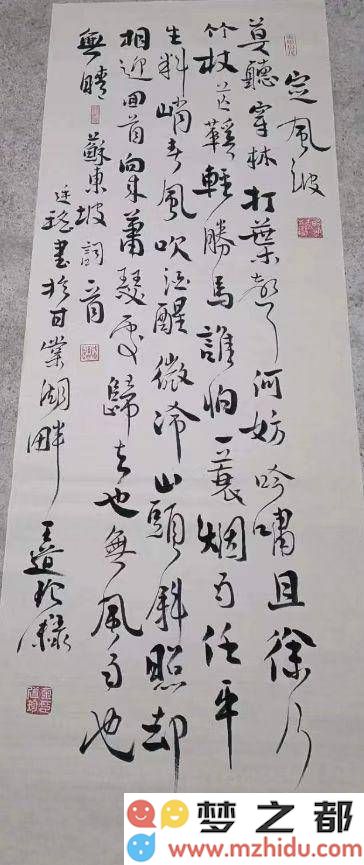 定風波
莫聽穿林打葉聲何妨吟嘯且徐行
竹杖芒鞵輕勝馬誰怕一蓑烟雨任平
生料峭春風吹酒醒微冷山頭斜照却
相迎回首向來蕭瑟處歸去也無風雨也
無晴 蘇東坡詞一首
書於甘棠湖畔 王道
梦之都
www.mzhidu.com